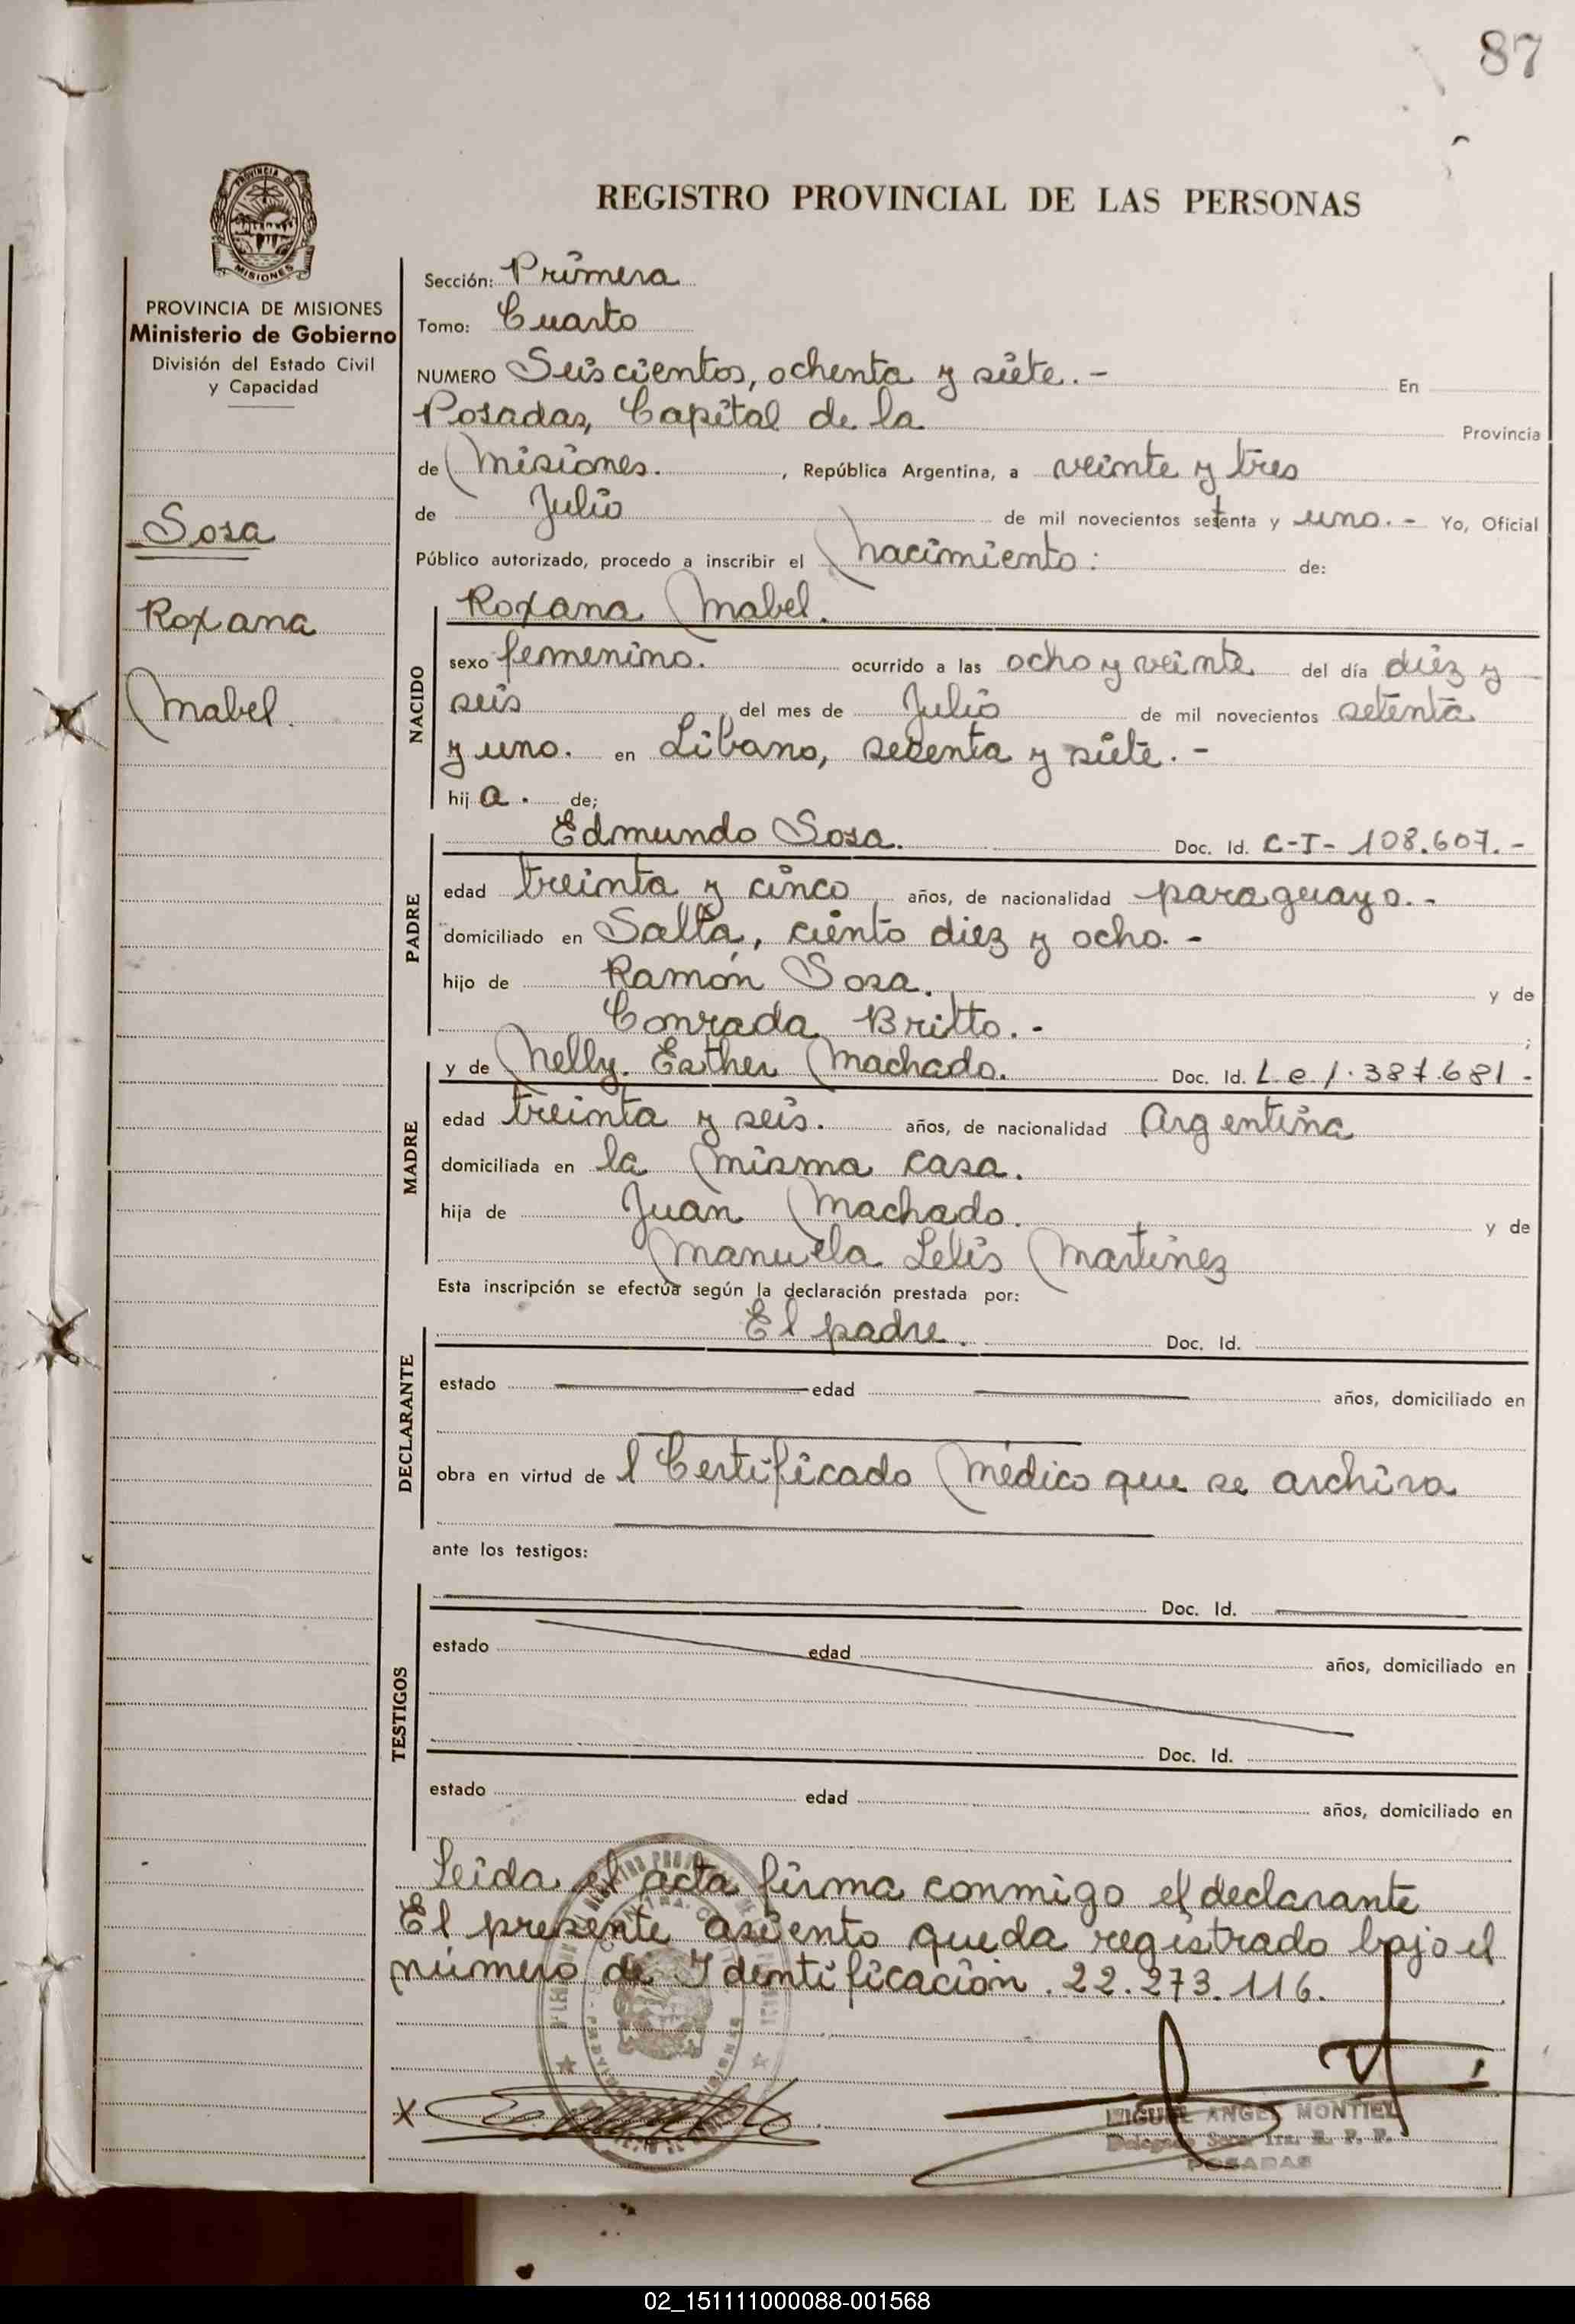 87
REGISTRO PROVINCIAL DE LAS PERSONAS
MISIONES
PROVINCIA DE MISIONES
Ministerio de Gobierno
División del Estado Civil
y Capacidad
Sosa
Roxana
Mabel.
Sección: Primera
Tomo: Cuarto
NUMERO Seiscientos, ochenta y siete. - En
Posadas, Capital de la Provincia
de Misiones. , República Argentina, a veinte y tres
de Julio de mil novecientos setenta y uno. - Yo, Oficial
Público autorizado, procedo a inscribir el Nacimiento: de:
NACIDO
Roxana Mabel.
sexo femenino. ocurrido a las ocho y veinte del día diez y
seis del mes de Julio de mil novecientos setenta
y uno. en Líbano, sesenta y siete. -
hij a. de;
PADRE
Edmundo Sosa. Doc. Id. C-I- 108.607. -
edad treinta y cinco años, de nacionalidad paraguayo. -
domiciliado en Salta, ciento diez y ocho. -
hijo de Ramón Sosa. y de
Conrada Britto. - ;
MADRE
y de Nelly. Esther Machado. Doc. Id. L e 1.387.681 -
edad treinta y seis. años, de nacionalidad Argentina
domiciliada en la misma casa.
hija de Juan Machado. y de
Manuela Martinez
Esta inscripción se efectúa según la declaración prestada por:
DECLARANTE
El padre. Doc. Id.
estado edad años, domiciliado en
obra en virtud de l Certificado Médico que se archiva
ante los testigos:
TESTIGOS
Doc. Id.
estado edad años, domiciliado en
Doc. Id.
estado edad años, domiciliado en
Leida el acta firma conmigo el declarante
El presente asiento queda registrado bajo el
número de Identificación. 22.273.116.
MIGUEL ANGEL MONTIEL
POSADAS
02_151111000088-001568